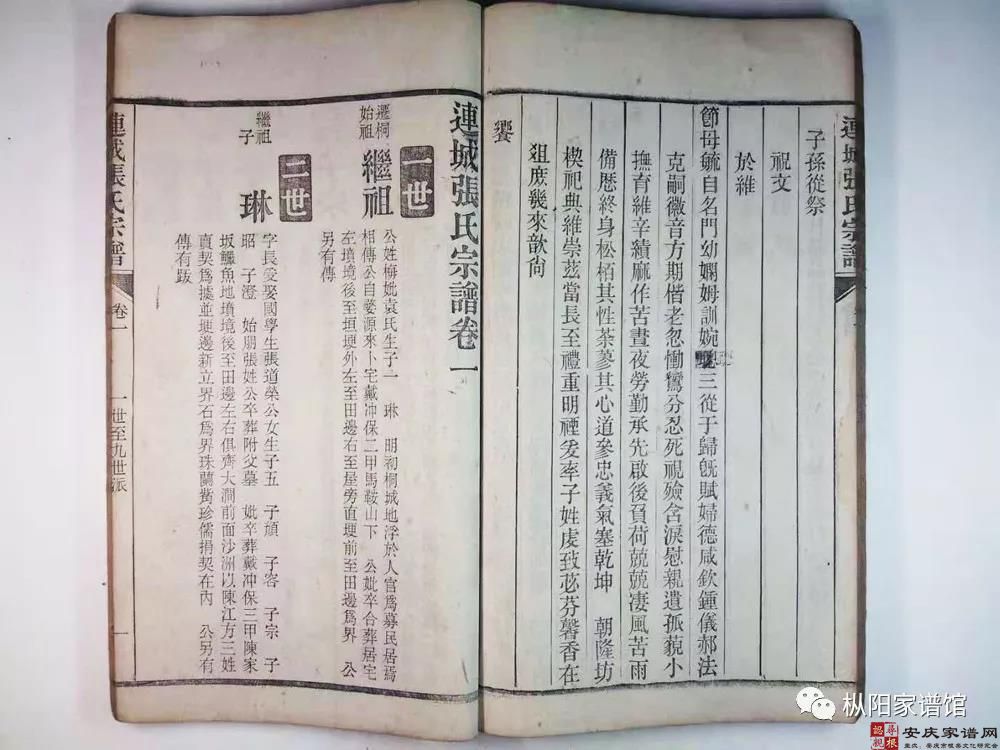 連城張氏宗譜
子孫從祭
祝文
於維
節母毓自名門幼嫻姆訓婉 三從于歸旣賦婦德咸欽鍾儀郝法
克嗣徽音方期偕老忽慟鸞分忍死視殮含淚慰親遺孤藐小
撫育維辛績麻作苦晝夜勞勤承先啟後負荷兢兢凄風苦雨
備歷終身松栢其性荼蓼其心道參忠義氣塞乾坤 朝隆坊
楔祀典維崇茲當長至禮重明禋爰率子姓虔致苾芬馨香在
俎庶幾來歆尙
饗
連城張氏宗譜卷一
一世
遷桐始祖
繼祖
公姓 妣袁氏生子一 琳 明初桐城地浮於人官爲募民居焉
相傳公自婺源來卜宅戴冲保二甲馬鞍山下 公妣卒合葬居宅
左墳境後至垣埂外左至田邊右至屋旁直埂前至田邊爲界 公
另有傳
二世
繼祖子
琳
字長愛娶國學生張道榮公女生子五 子頎 子容 子宗 子
昭 子澄 始朋張姓公卒葬附父墓 妣卒葬戴冲保三甲陳家
坂鱷魚地墳境後至田邊左右俱齊大澗前面沙洲以陳江方三姓
賣契爲據並埂邊新立界石爲界珠蘭黌珍儒捐契在內 公另有
傳有跋
連城張氏宗譜
卷一
一世至九世派
一
枞阳家谱馆
尋根認親
安庆家谱网